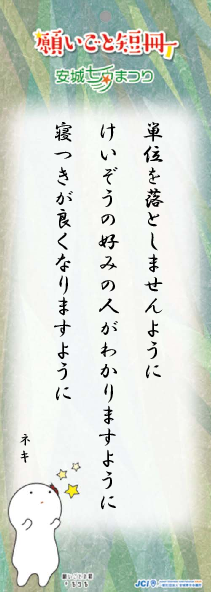 願いごと短冊
安城七夕まつり
単位を落としませんように
けいぞうの好みの人がわかりますように
寝つきが良くなりますように
ネキ
JCI